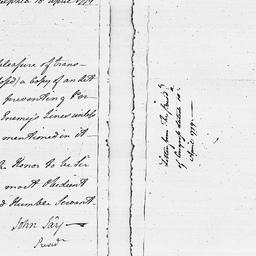 delphia 18 April 1779
pleasure of trans-
losed) a copy of an Act
preventing Per
Enemy's Lines unless
mentioned in it –
the Honor to be Sir
most Obedient
d Humble Servant
John Jay –
Presid
Letter from The Presid
of Congress dated 18
April 1779. –